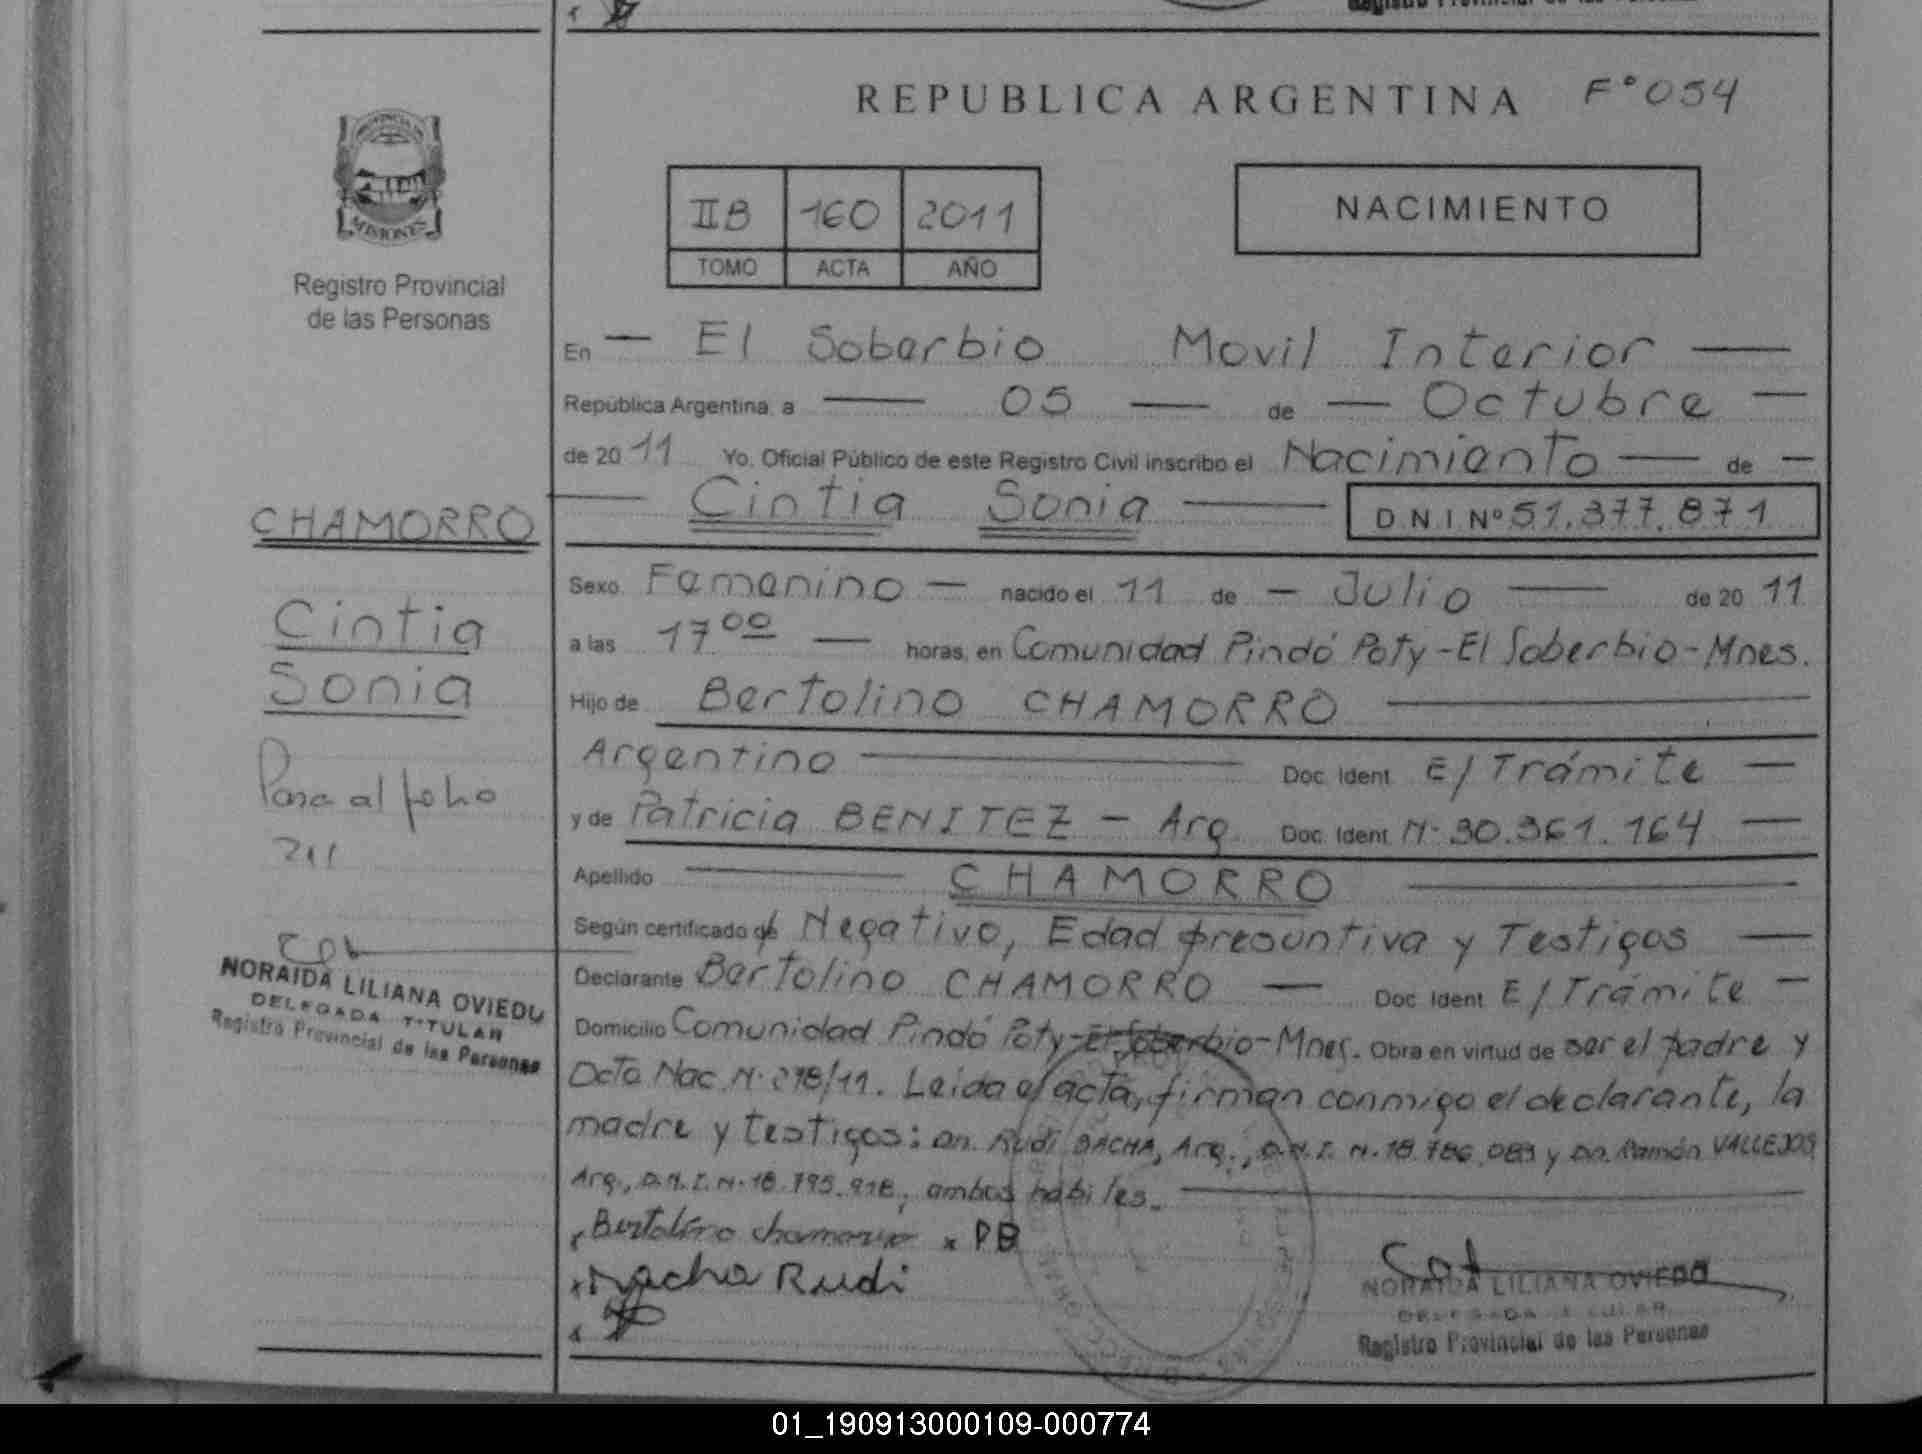 Registro Provincial de las Personas
REPUBLICA ARGENTINA F° 054
PROVINCIA DE
MISIONES
Registro Provincial
de las Personas
IIB 160 2011
TOMO ACTA AÑO
NACIMIENTO
En — El Soberbio Movil Interior —
República Argentina, a — 05 — de — Octubre —
de 2011 Yo, Oficial Público de este Registro Civil inscribo el Nacimiento — de —
— Cintia Sonia — D.N.I Nº 51.377.871
CHAMORRO
Cintia
Sonia
Pasa al folio
211
NORAIDA LILIANA OVIEDO
DELEGADA TITULAR
Registro Provincial de las Personas
Sexo Femenino — nacido el 11 de — Julio — de 2011
a las 17 00 — horas, en Comunidad Pindó Poty - El Soberbio - Mnes.
Hijo de Bertolino CHAMORRO —
Argentino — Doc. Ident. E/Trámite —
y de Patricia BENITEZ — Arg. Doc. Ident. N· 30.361.164 —
Apellido — CHAMORRO —
Según certificado de Negativo, Edad presuntiva y Testigos —
Declarante Bertolino CHAMORRO — Doc. Ident. E/Trámite —
Domicilio Comunidad Pindó Poty - El Soberbio - Mnes. Obra en virtud de ser el padre y
Octa Nac. N· 278/11. Leida el acta, firman conmigo el declarante, la
madre y testigos: Dn. Rudi BACHA, Arg., D.N.I. N· 18.786.089 y Dn. Ramón VALLEJOS
Arg., D.N.I. N· 18.795.918, ambos habiles. —
x Bertolino chamorro x PB
x Rudi
x
NORAIDA LILIANA OVIEDO
DELEGADA TITULAR
Registro Provincial de las Personas
01_190913000109-000774